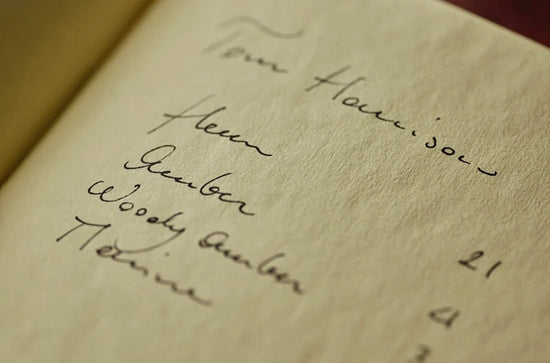 Tom Harrison
Amber
Woody Amber 21
Marine 4
3